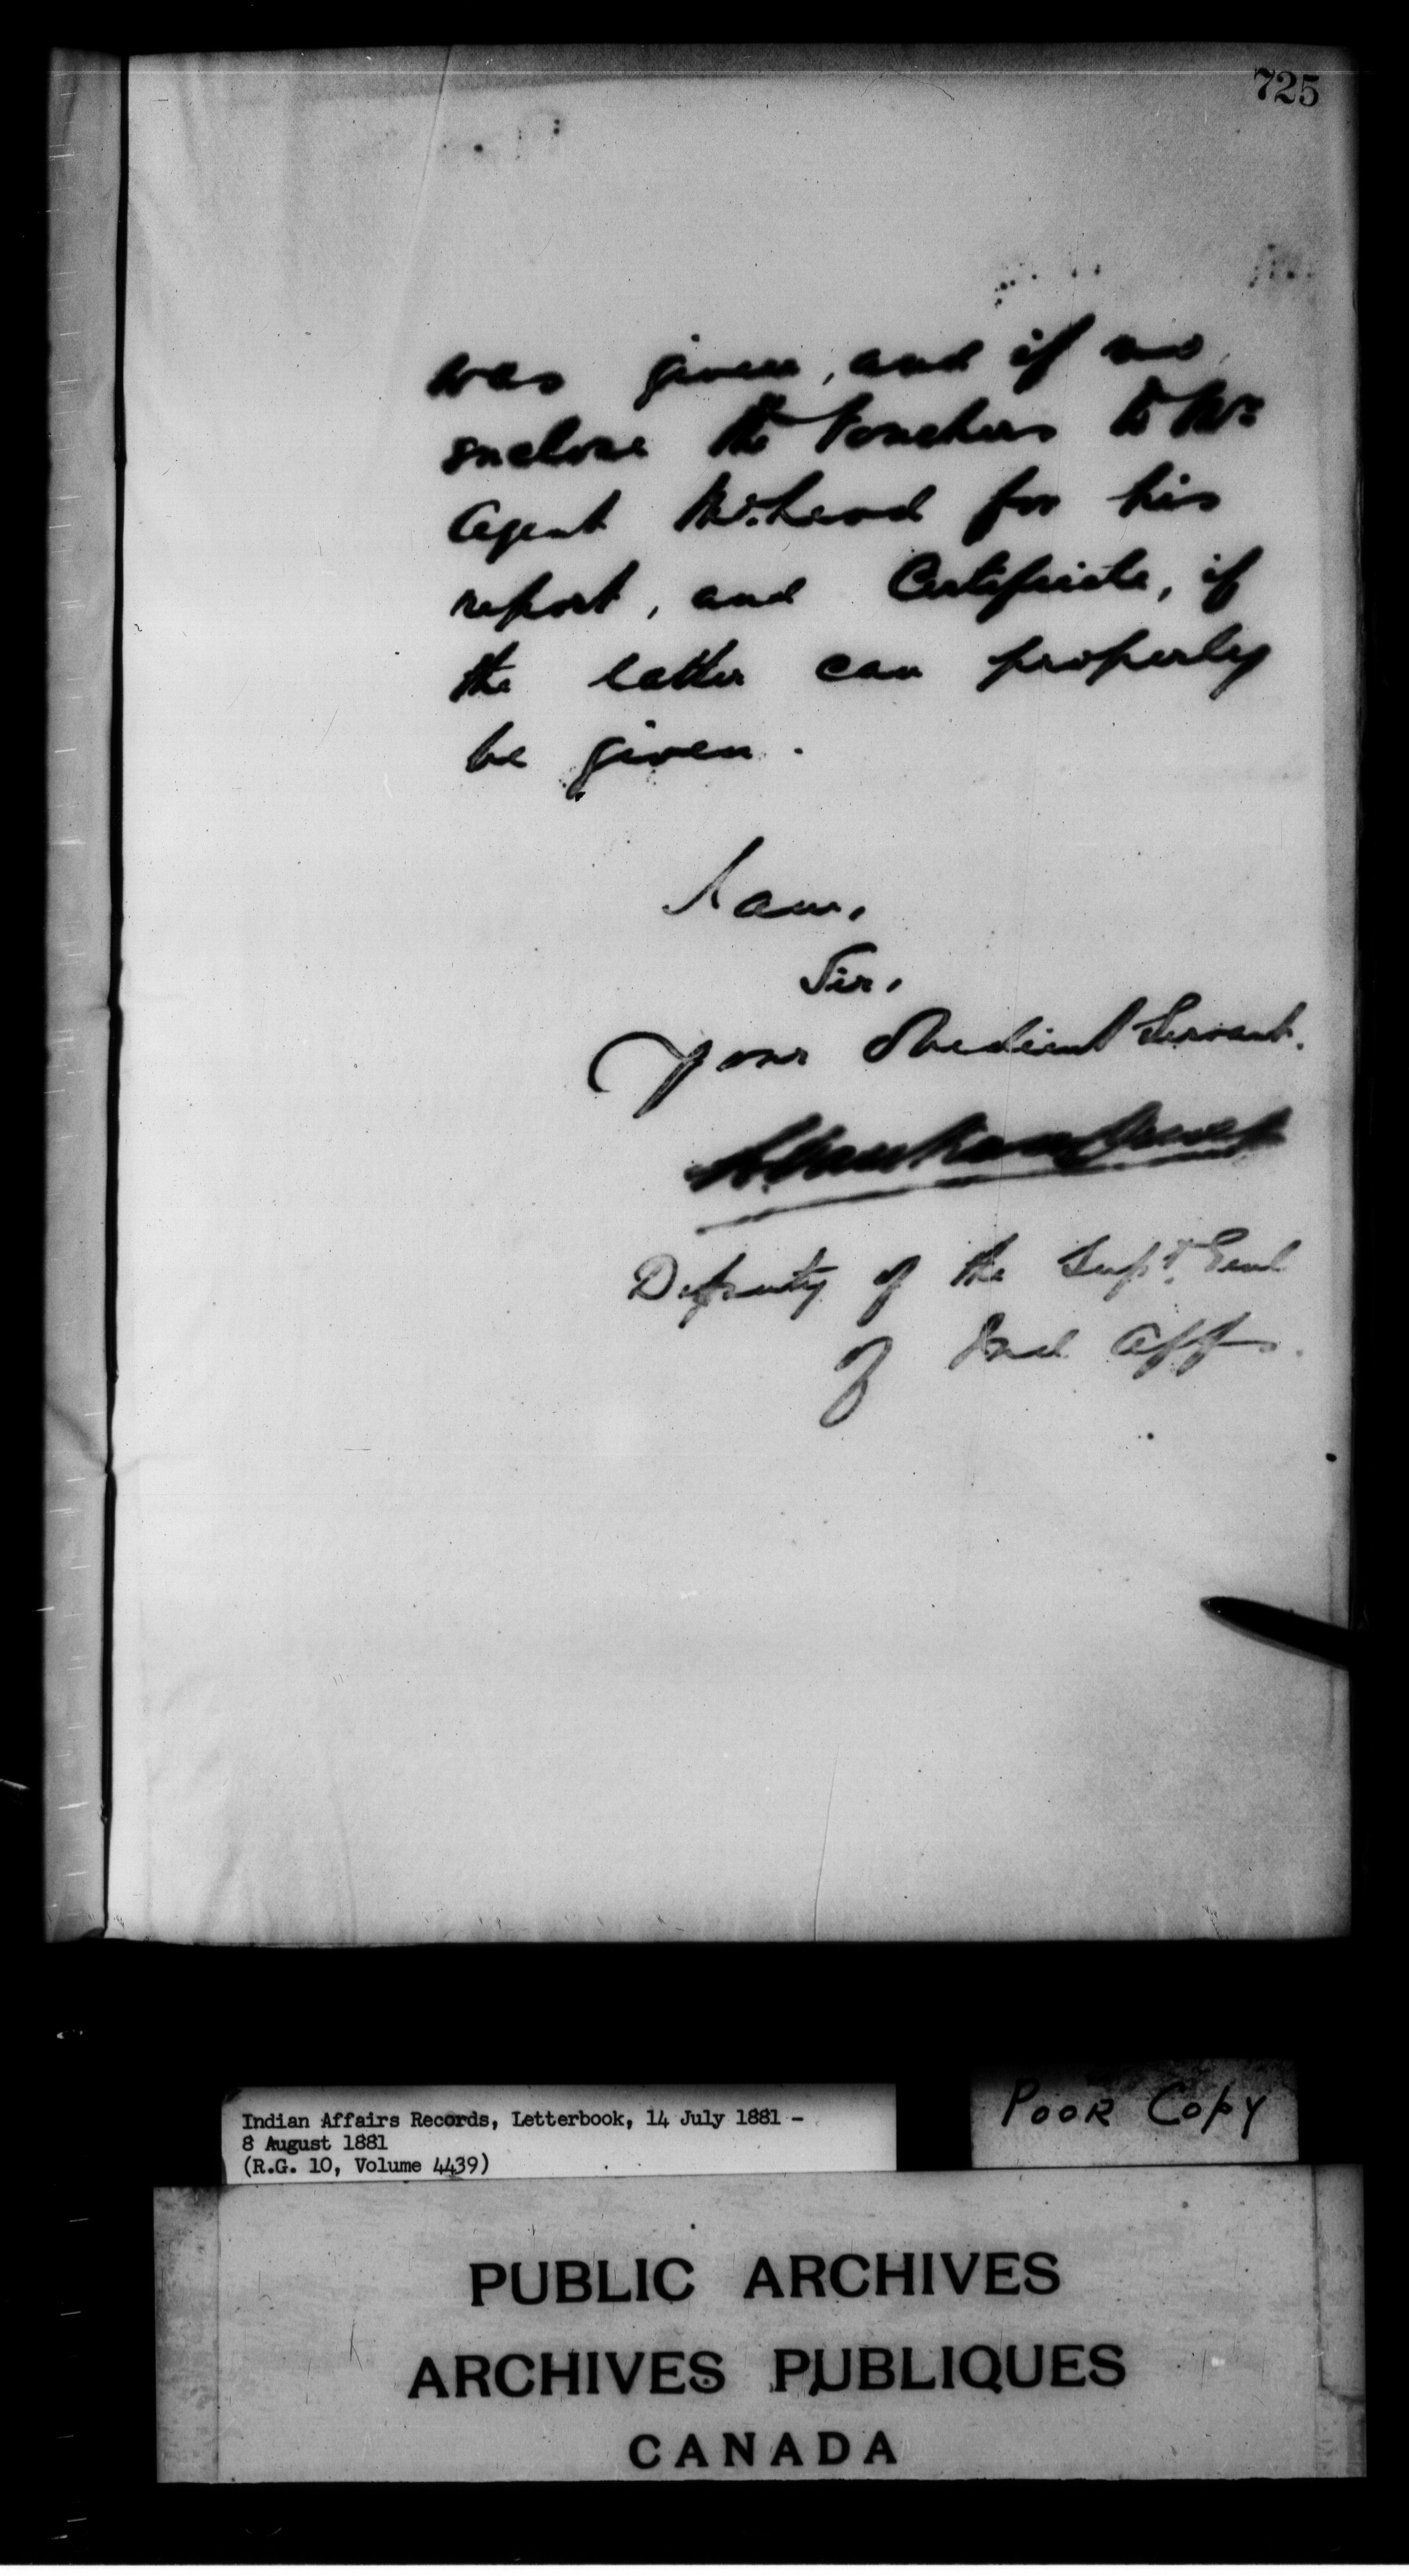 725
was given, and if no,
enclose the Vouchers to Mr
Agent McLeod for his
report, and Certificate, if
the latter can properly
be given.
I am,
Sir,
Your Obedient Servant.
L Vankoughnet
Deputy of the Supt. Genl
of Ind Affs.
Indian Affairs Records, Letterbook, 14 July 1881 -
8 August 1881
(R.G. 10, Volume 4439)
POOR COPY
PUBLIC ARCHIVES
ARCHIVES PUBLIQUES
CANADA